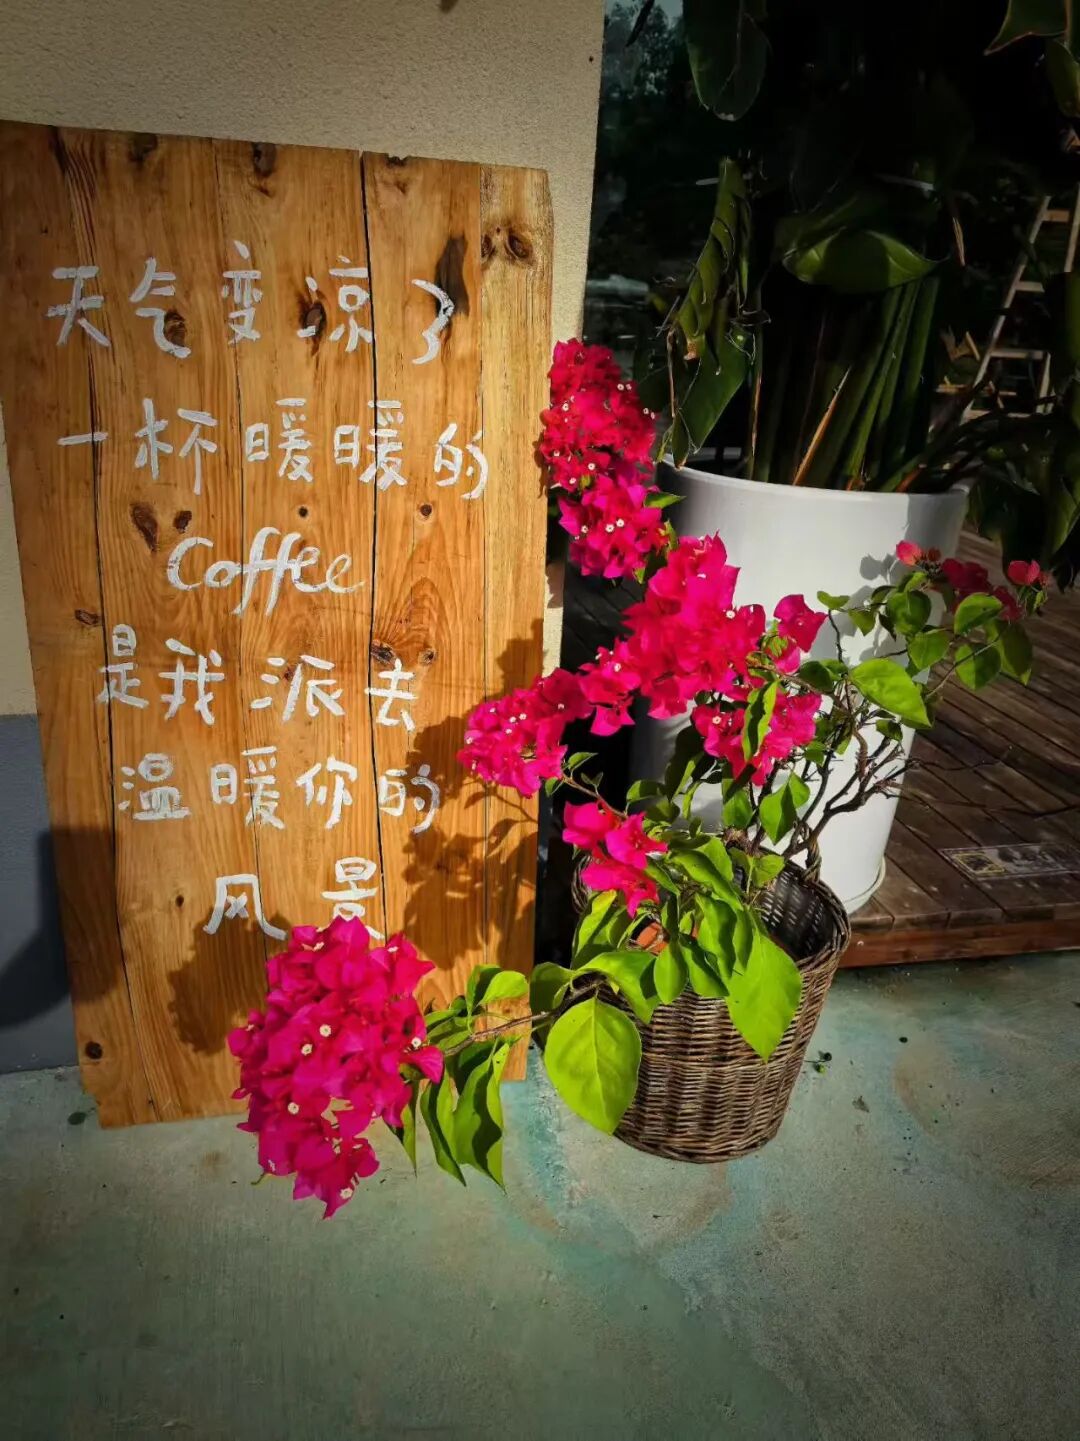 天气变凉了
一杯暖暖的
Coffee
是我派去
温暖你的
风景